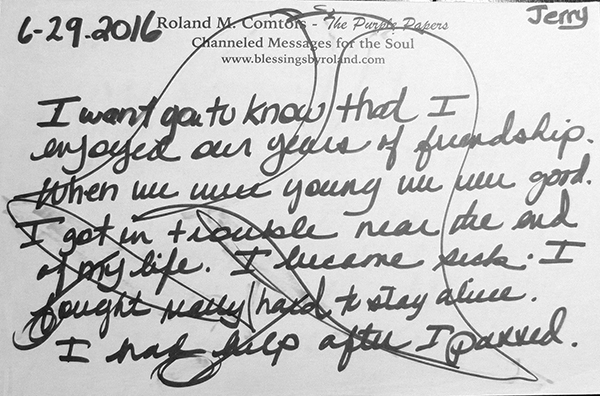 6-29.2016 Roland M. Comtois - The Purple Papers Jerry
Channeled Messages for the Soul
www.blessingsbyroland.com
I want you to know that I
enjoyed our years of friendship.
When we were young we were good.
I got in trouble near the end
of my life. I became sick. I
fought really hard to stay alive.
I had help after I passed.